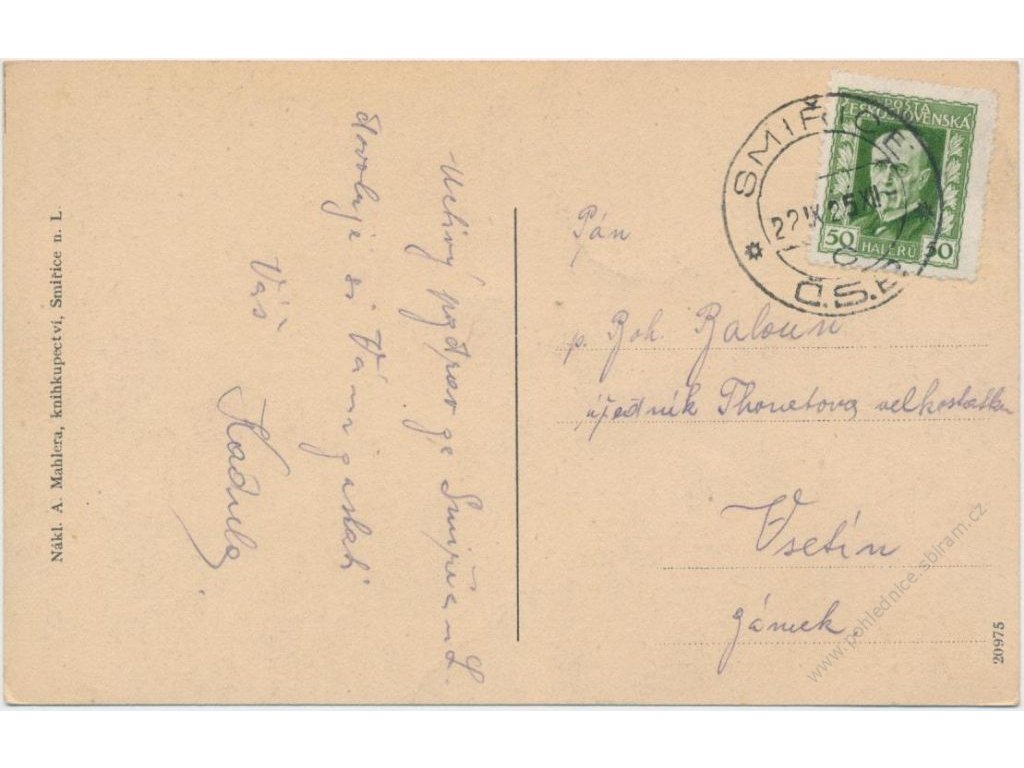 Nákl. A. Mahlera, knihkupectví, Smiřice n. L.
Uctivý pozdrav ze Smiřic n. L.
dovoluje si Vám zaslati
Váš
SMIŘICE
22 IX 25 XII
Č.S.
POŠTA
ČESKOSLOVENSKÁ
50 HALÉŘŮ 50
Pán
p. Boh. Baloun
úředník Thonetova velkostatku
Vsetín
zámek.
20975
www.pohlednice.sbiram.cz